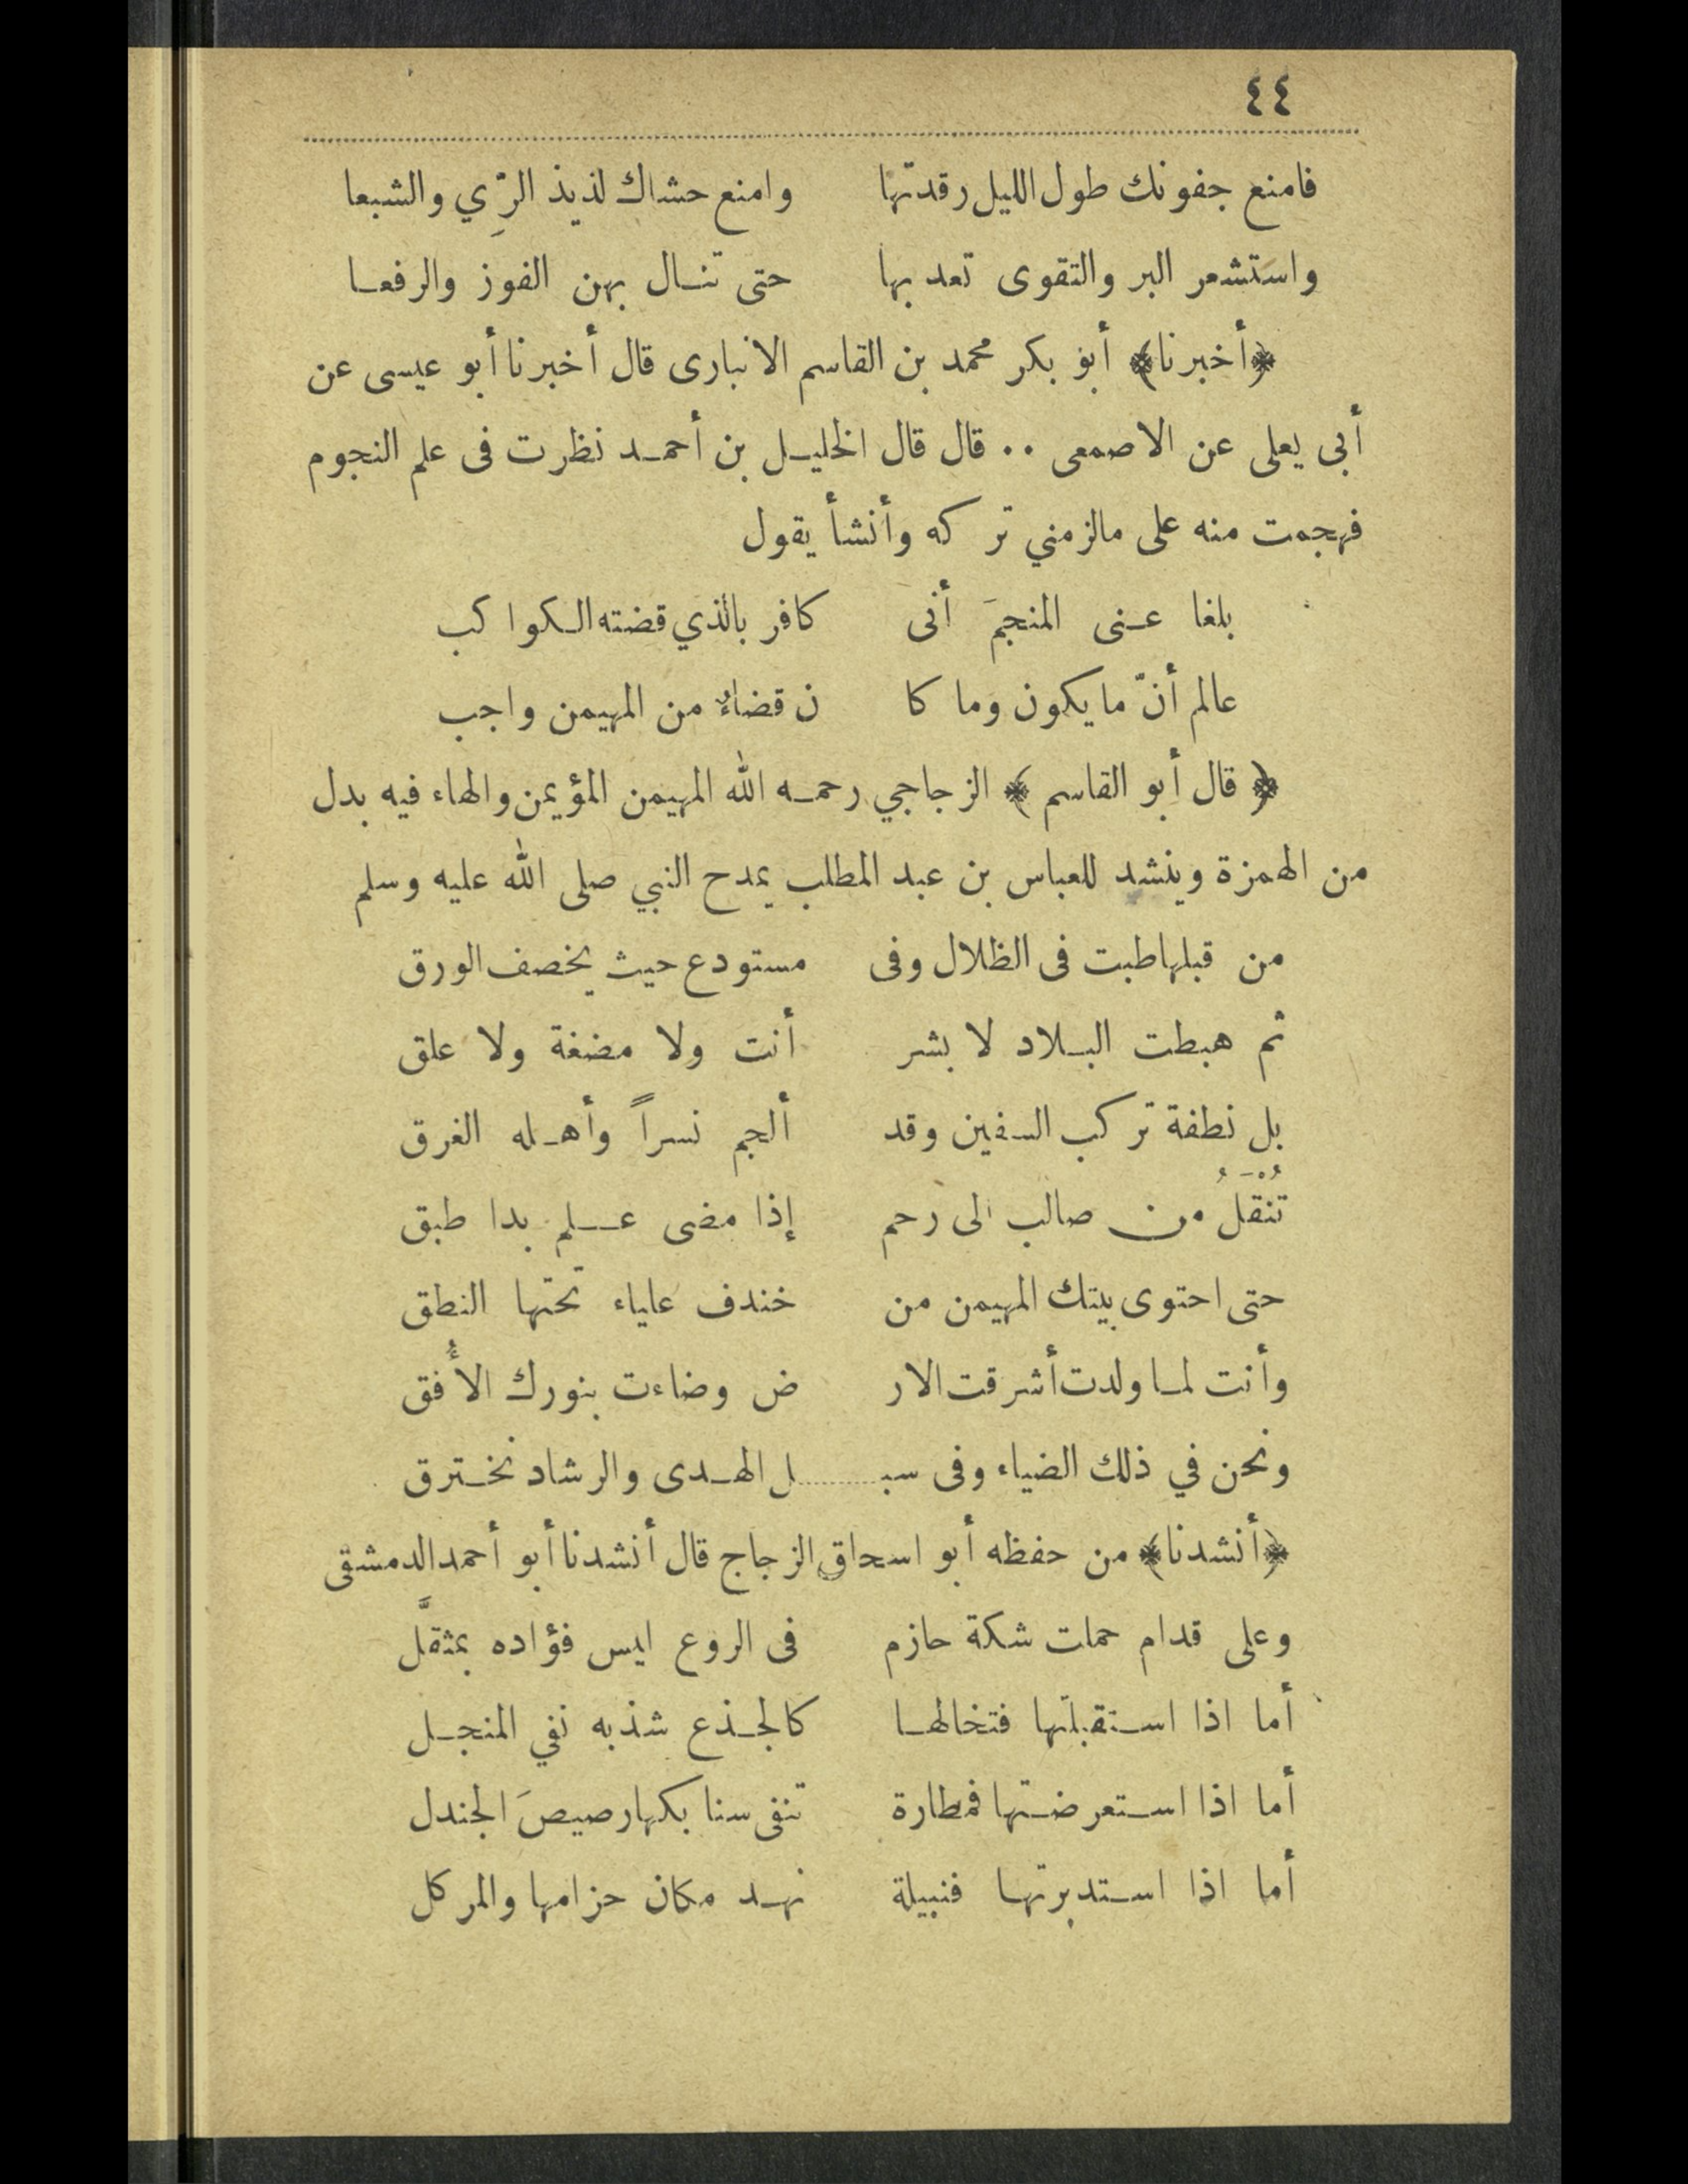 ٤٤
فامنع جفونك طول الليل رقدتها وامنع حشاك لذيذ الرِّي والشبعا
واستشعر البر والتقوى تعد بها حتى تنال بهن الفوز والرفعا
﴿أخبرنا﴾ أبو بكر محمد بن القاسم الانبارى قال أخبرنا أبو عيسى عن
أبى يعلى عن الاصمعى ٠٠ قال قال الخليل بن أحمد نظرت فى علم النجوم
فهجمت منه على مالزمني تركه وأنشأ يقول
بلغا عنى المنجمَ أنى كافر بالذي قضته الكواكب
عالم أنّ ما يكون وما كا ن قضاءٌ من المهيمن واجب
﴿ قال أبو القاسم ﴾ الزجاجي رحمه الله المهيمن المؤيمن والهاء فيه بدل
من الهمزة وينشد للعباس بن عبد المطلب يمدح النبي صلى الله عليه وسلم
من قبلها طبت فى الظلال وفى مستودع حيث يخصف الورق
ثم هبطت البلاد لا بشر أنت ولا مضغة ولا علق
بل نطفة تركب السفين وقد ألجم نسراً وأهله الغرق
تُنْقَلُ من صالب الى رحم إذا مضى علم بدا طبق
حتى احتوى بيتك المهيمن من خندف علياء تحتها النطق
وأنت لما ولدت أشرقت الار ض وضاءت بنورك الأُفق
ونحن في ذلك الضياء وفى سبـ ـل الهدى والرشاد نخترق
﴿أنشدنا﴾ من حفظه أبو اسحاق الزجاج قال أنشدنا أبو أحمد الدمشقى
وعلى قدام حملت شكة حازم فى الروع ليس فؤاده بمثقَّل
أما اذا استقبلتها فتخالها كالجذع شذبه نفي المنجل
أما اذا استعرضتها فمطارة تنفى سنابكها رصيصَ الجندل
أما اذا استدبرتها فنبيلة نهد مكان حزامها والمركل